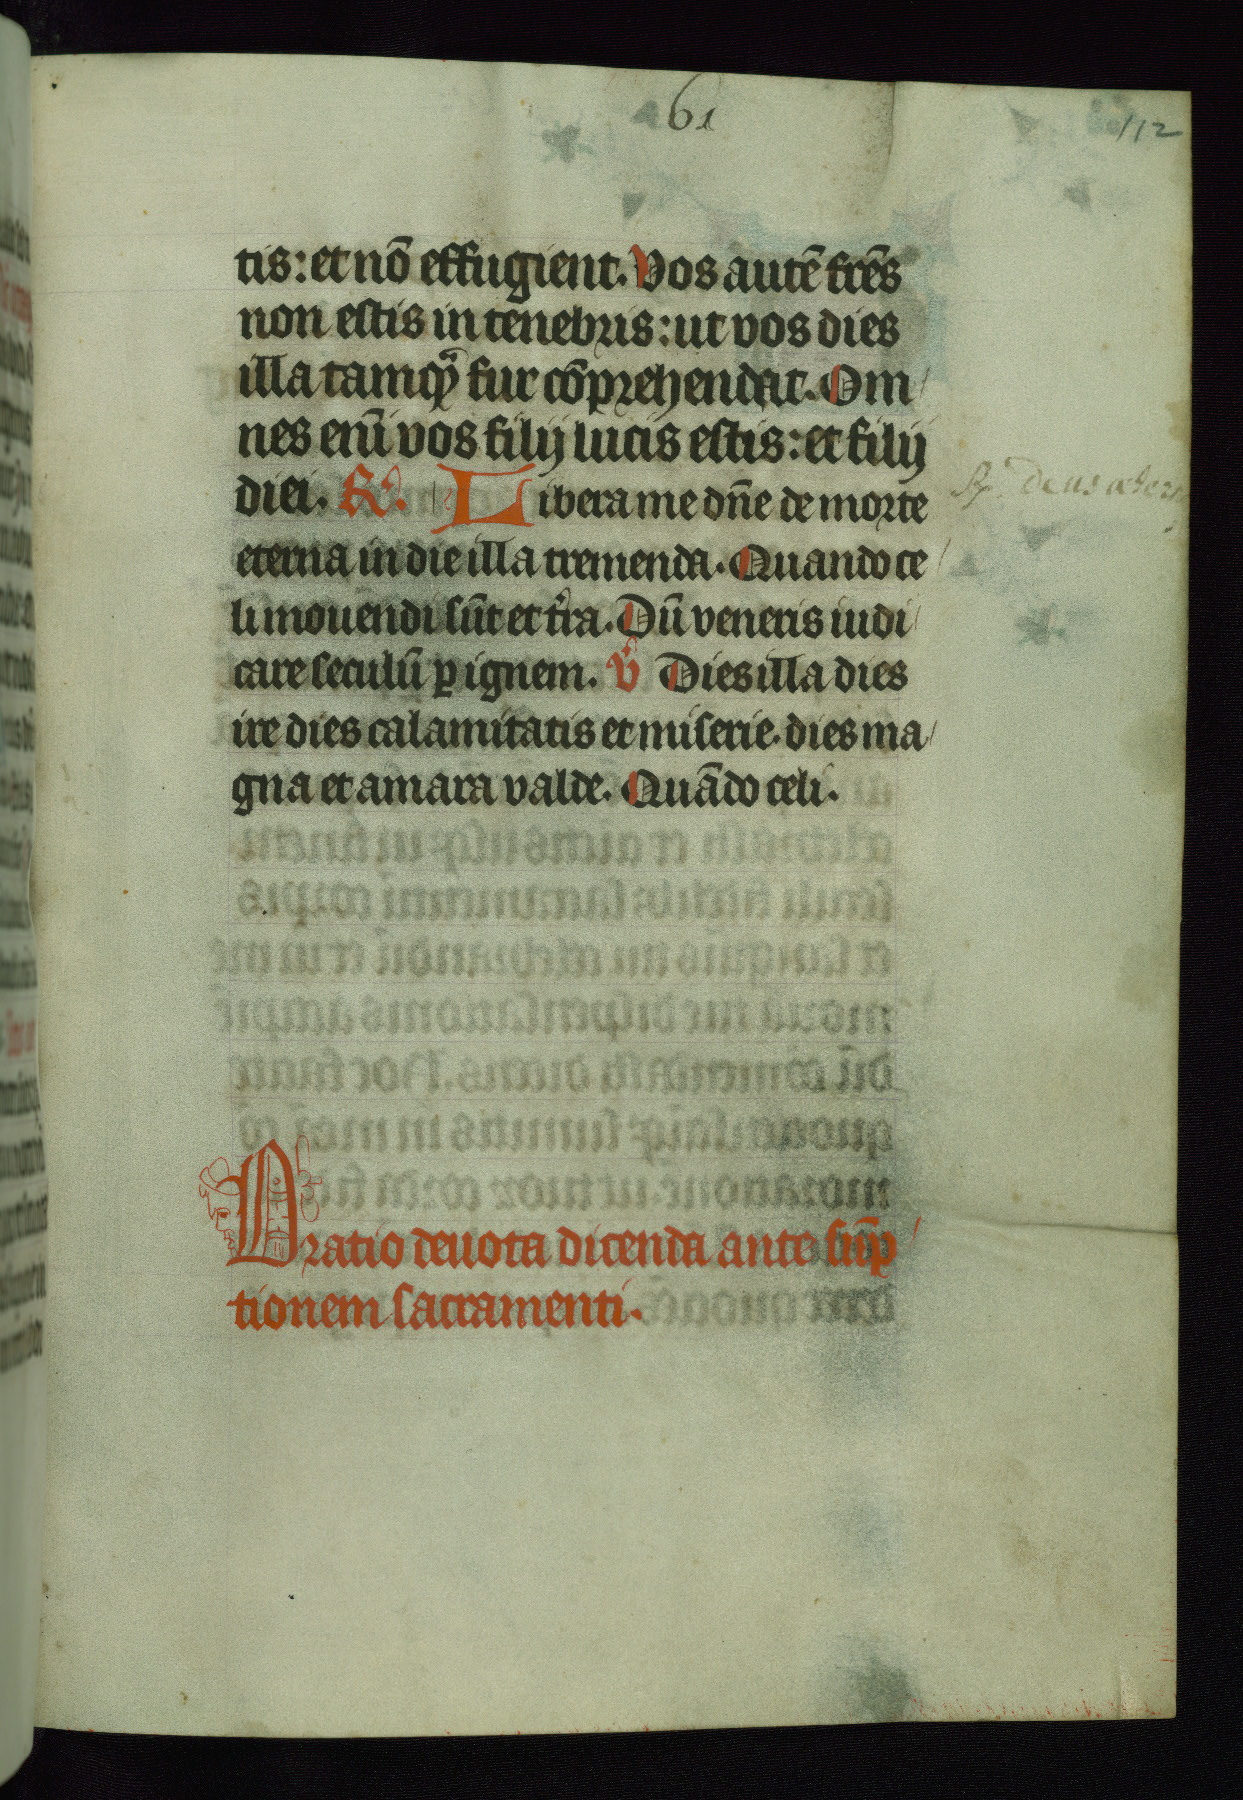 61
112
tis: et nō effugient. Vos autē frēs
non estis in tenebris: ut vos dies
illa tamqͣ fur cōprehendat. Om
nes enī vos filij lucis estis: et filij
diei. R̃. Libera me dn̄e de morte
R̃. deus eter
eterna in die illa tremenda. Quando ce
li mouendi sūt et t̃ra. Dū veneris iudi
care seculū ꝑ ignem. V̓ Dies illa dies
ire dies calamitatis et miserie. dies ma
gna et amara valde. Quādo celi.
Oratio deuota dicenda ante sūp
tionem sacramenti.